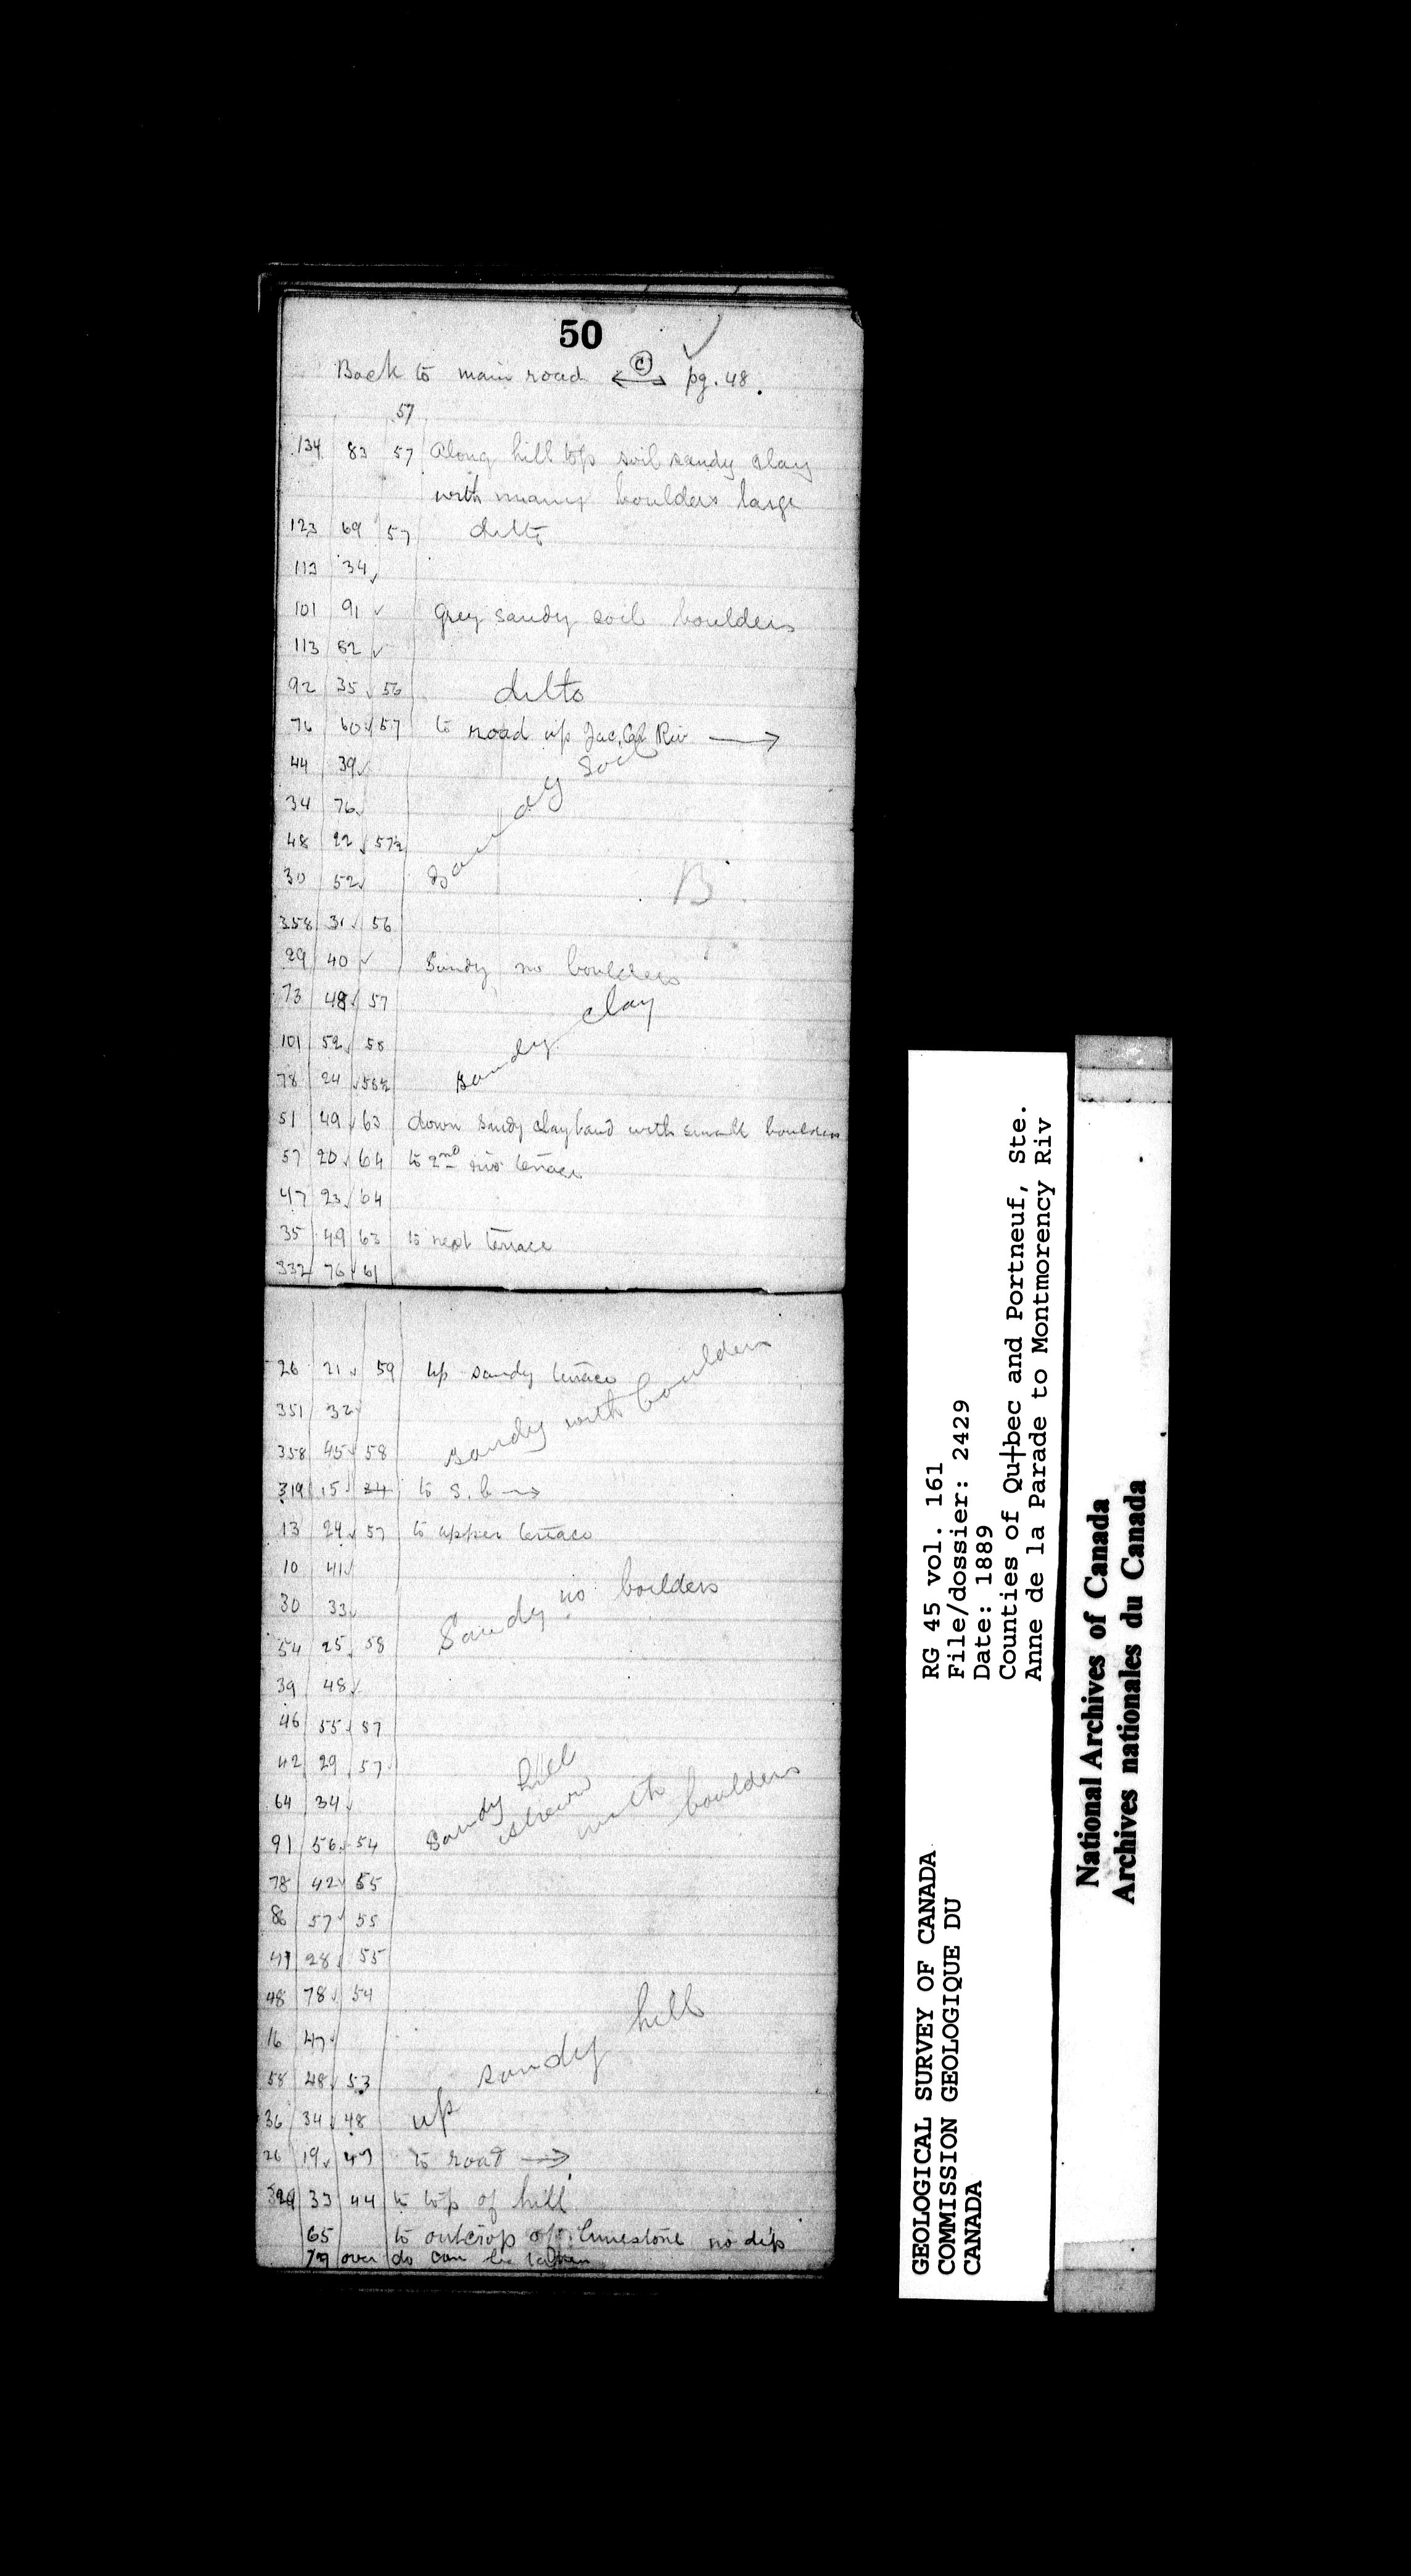 50
Back to main road ⟷ (C) pg. 48.
57
134 83 57 Along hill top soil sandy clay
with many boulders large
123 69 57 ditto
113 34 ✓
101 91 ✓ grey sandy soil boulders
113 62 ✓
92 35 ✓ 56 ditto
76 60 ✓ 57 to road up Jac. Cal Riv →
44 39 ✓
34 76 ✓
48 22 ✓ 57½
sandy soil
30 52 ✓
B
358 31 ✓ 56
29 40 ✓ Sandy no boulders
73 48 ✓ 57
101 52 ✓ 58
sandy clay
78 24 ✓ 58½
51 49 ✓ 63 down sandy clay land with small boulders
57 20 ✓ 64 to 2nd riv terrace
47 23 ✓ 64
35 49 63 to next terrace
332 76 ✓ 61
26 21 ✓ 59 up sandy terrace
351 32 ✓
358 45 ✓ 58
sandy with boulders
319 15 ✓ 34 to S. b →
13 24 ✓ 57 to upper terrace
10 41 ✓
30 33 ✓
54 25 ✓ 58
Sandy no boulders
39 48 ✓
46 55 ✓ 57
42 29 ✓ 57
64 34 ✓
91 56 ✓ 54
Sandy hill
strewn
with boulders
78 42 ✓ 55
86 57 ✓ 55
28 ✓ 55
48 78 ✓ 54
16 47 ✓
58 48 ✓ 53
36 34 ✓ 48 up sandy hill
26 19 ✓ 47 to road →
33 44 to top of hill
65 to outcrop of limestone no dip
79 over do can be taken
GEOLOGICAL SURVEY OF CANADA
COMMISSION GEOLOGIQUE DU
CANADA
RG 45 vol. 161
File/dossier: 2429
Date: 1889
Counties of Qu┼bec and Portneuf, Ste.
Anne de la Parade to Montmorency Riv
National Archives of Canada
Archives nationales du Canada